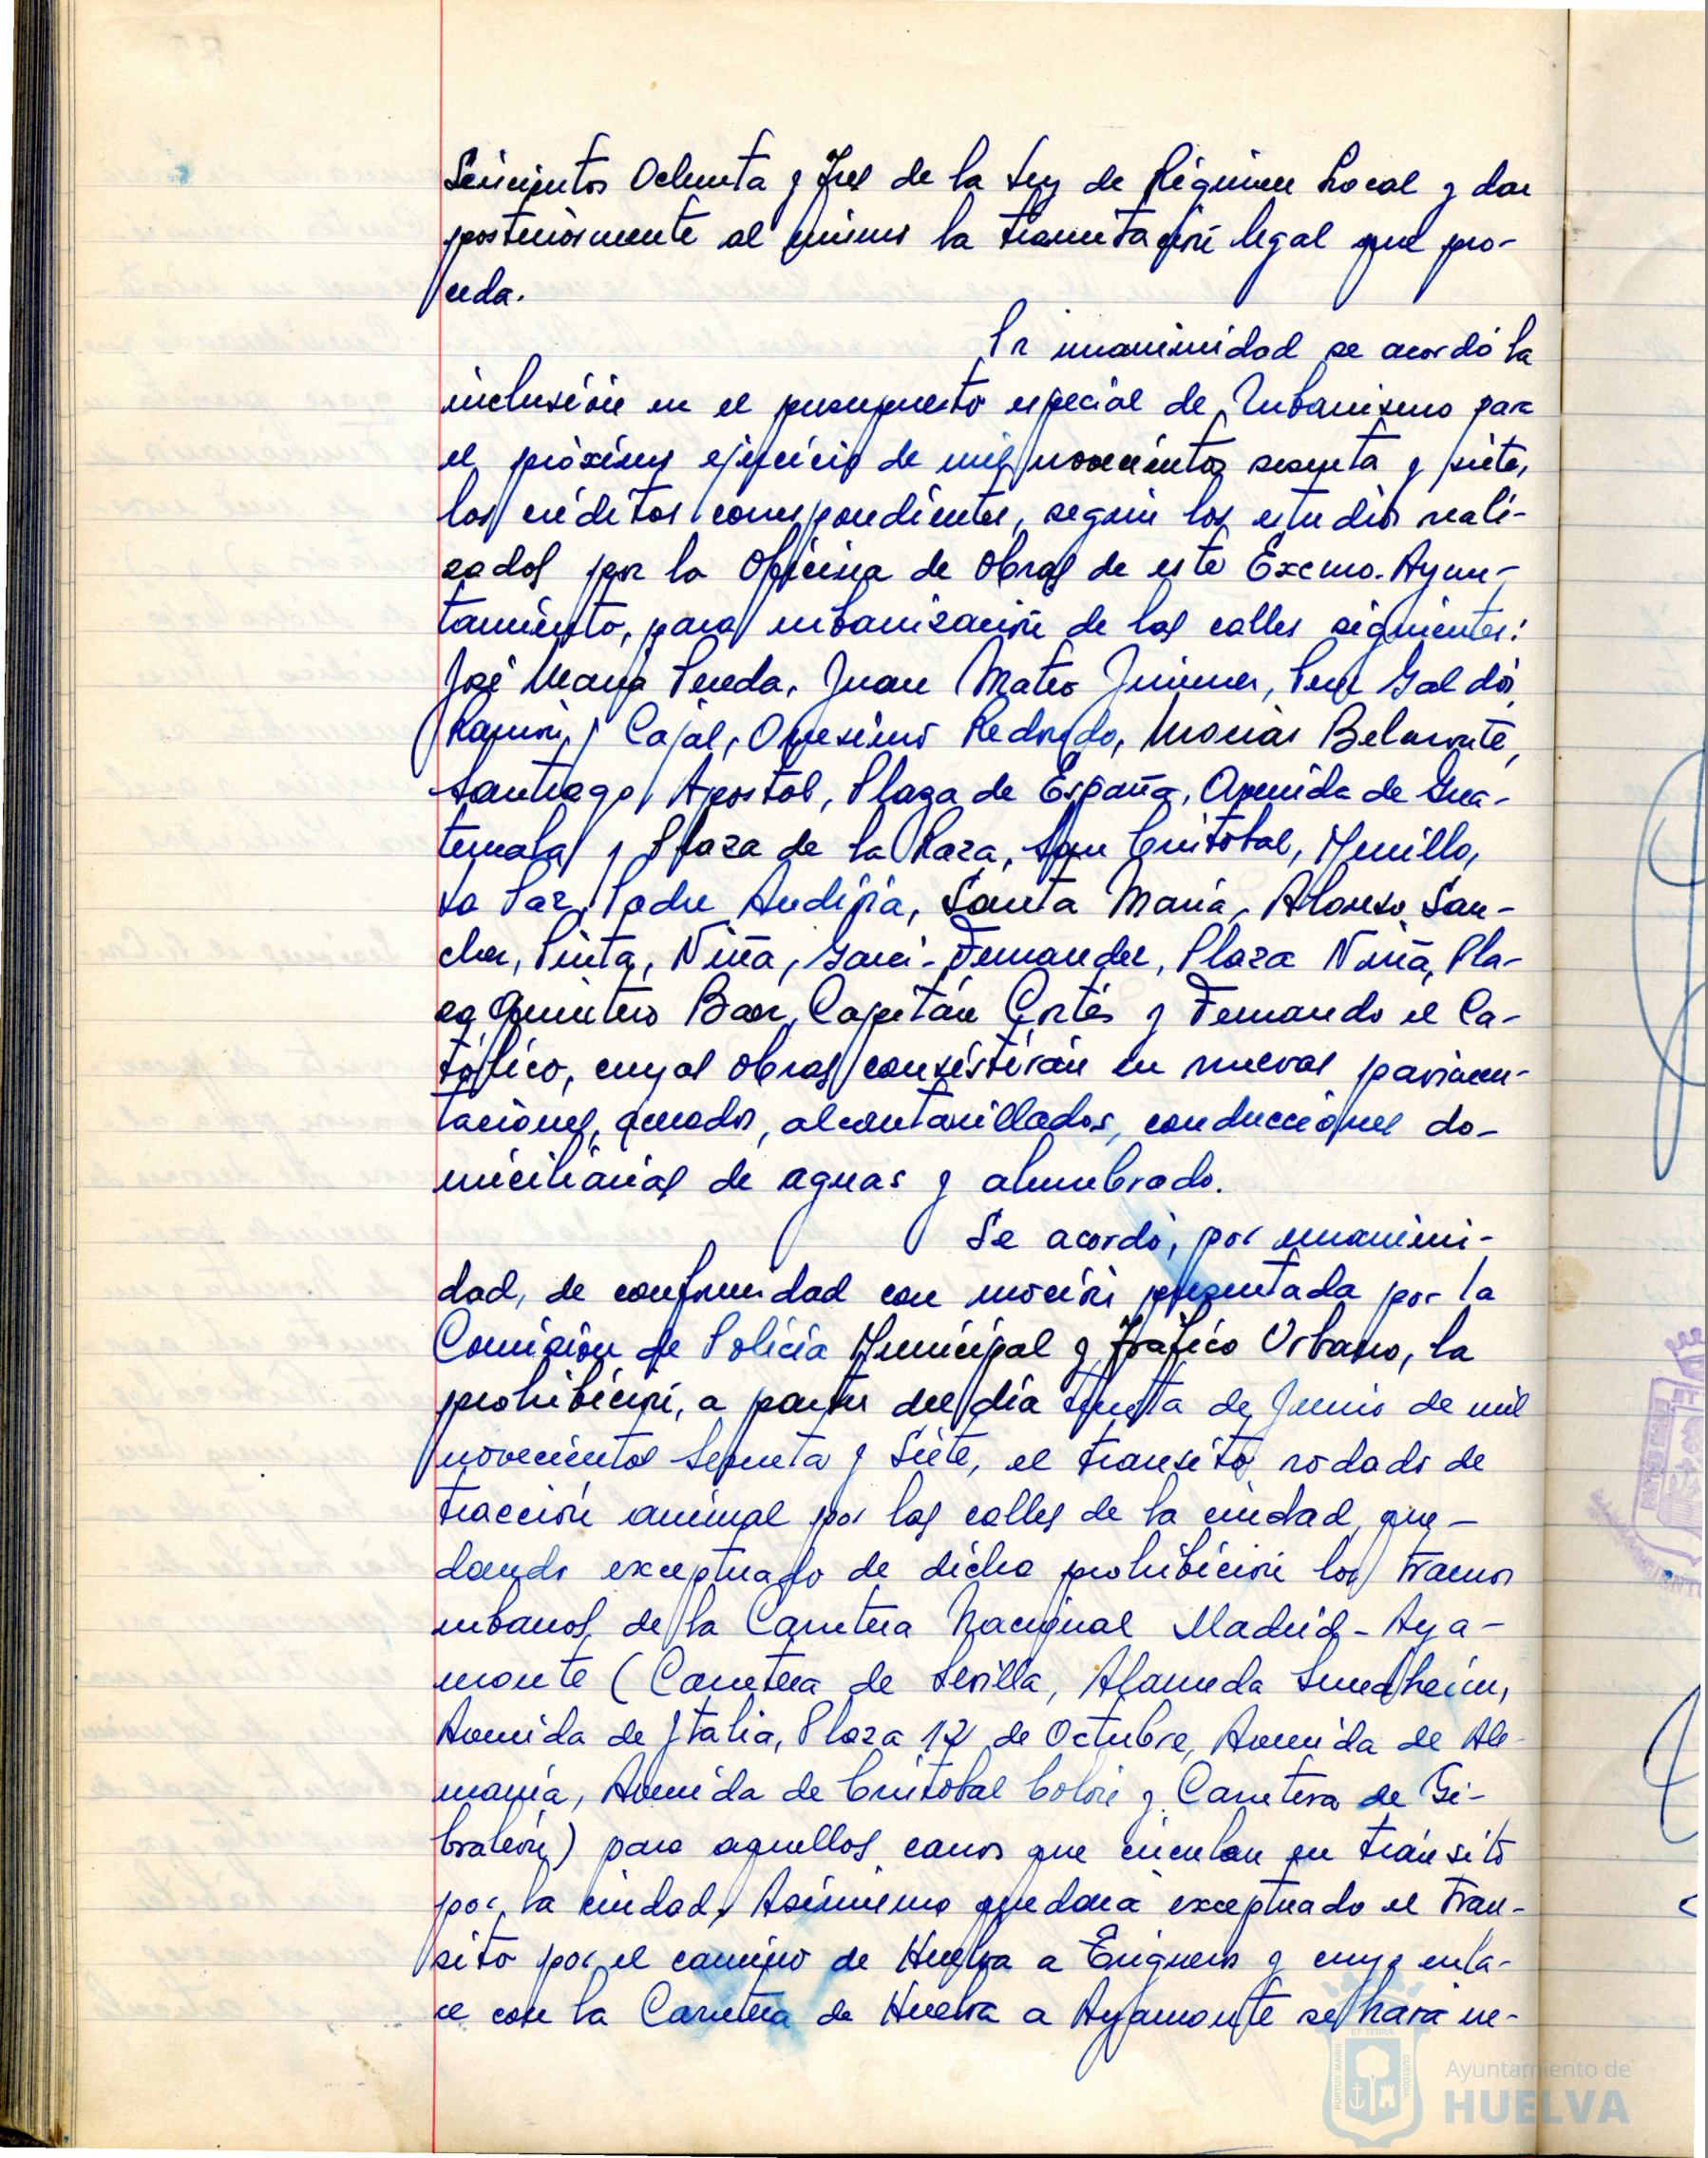 Seiscientos Ochenta y Tres de la Ley de Régimen Local y dar
posteriormente al mismo la tramitación legal que pro-
ceda.
Por unanimidad se acordó la
inclusión en el presupuesto especial de Urbanismo para
el próximo ejercicio de mil novecientos sesenta y siete,
los créditos correspondientes, según los estudios reali-
zados por la Oficina de Obras de este Excmo. Ayun-
tamiento, para urbanización de las calles siguientes:
José María Pereda, Juan Mateo Jimenez, Perez Galdós,
Ramón y Cajal, Onesimo Redondo, Macías Belmonte,
Santiago Apostol, Plaza de España, Avenida de Gua-
temala y Plaza de la Raza, San Cristobal, Murillo,
La Paz, Padre Andivia, Santa María, Alonso San-
chez, Pinta, Niña, Garci-Fernandez, Plaza Niña, Pla-
za Quintero Baez, Capitán Cortés y Fernando el Ca-
tólico, cuyas obras consistirán en nuevas pavimen-
taciones, acerados, alcantarillados, conducciones do-
miciliarias de aguas y alumbrado.
Se acordó, por unanimi-
dad, de conformidad con moción presentada por la
Comisión de Policía Municipal y Tráfico Urbano, la
prohibición, a partir del día treinta de Junio de mil
novecientos Sesenta y Siete, el transito rodado de
tracción animal por las calles de la ciudad, que-
dando exceptuado de dicha prohibición los tramos
urbanos de la Carretera Nacional Madrid-Aya-
monte (Carretera de Sevilla, Alameda Sundheim,
Avenida de Italia, Plaza 12 de Octubre, Avenida de Ale-
mania, Avenida de Cristobal Colón y Carretera de Gi-
braleón) para aquellos carros que circulan en tránsito
por la ciudad. Asimismo quedará exceptuado el tran-
sito por el camino de Huelva a y cuyo enla-
ce con la Carretera de Huelva a Ayamonte se hará ne-
Ayuntamiento de
HUELVA